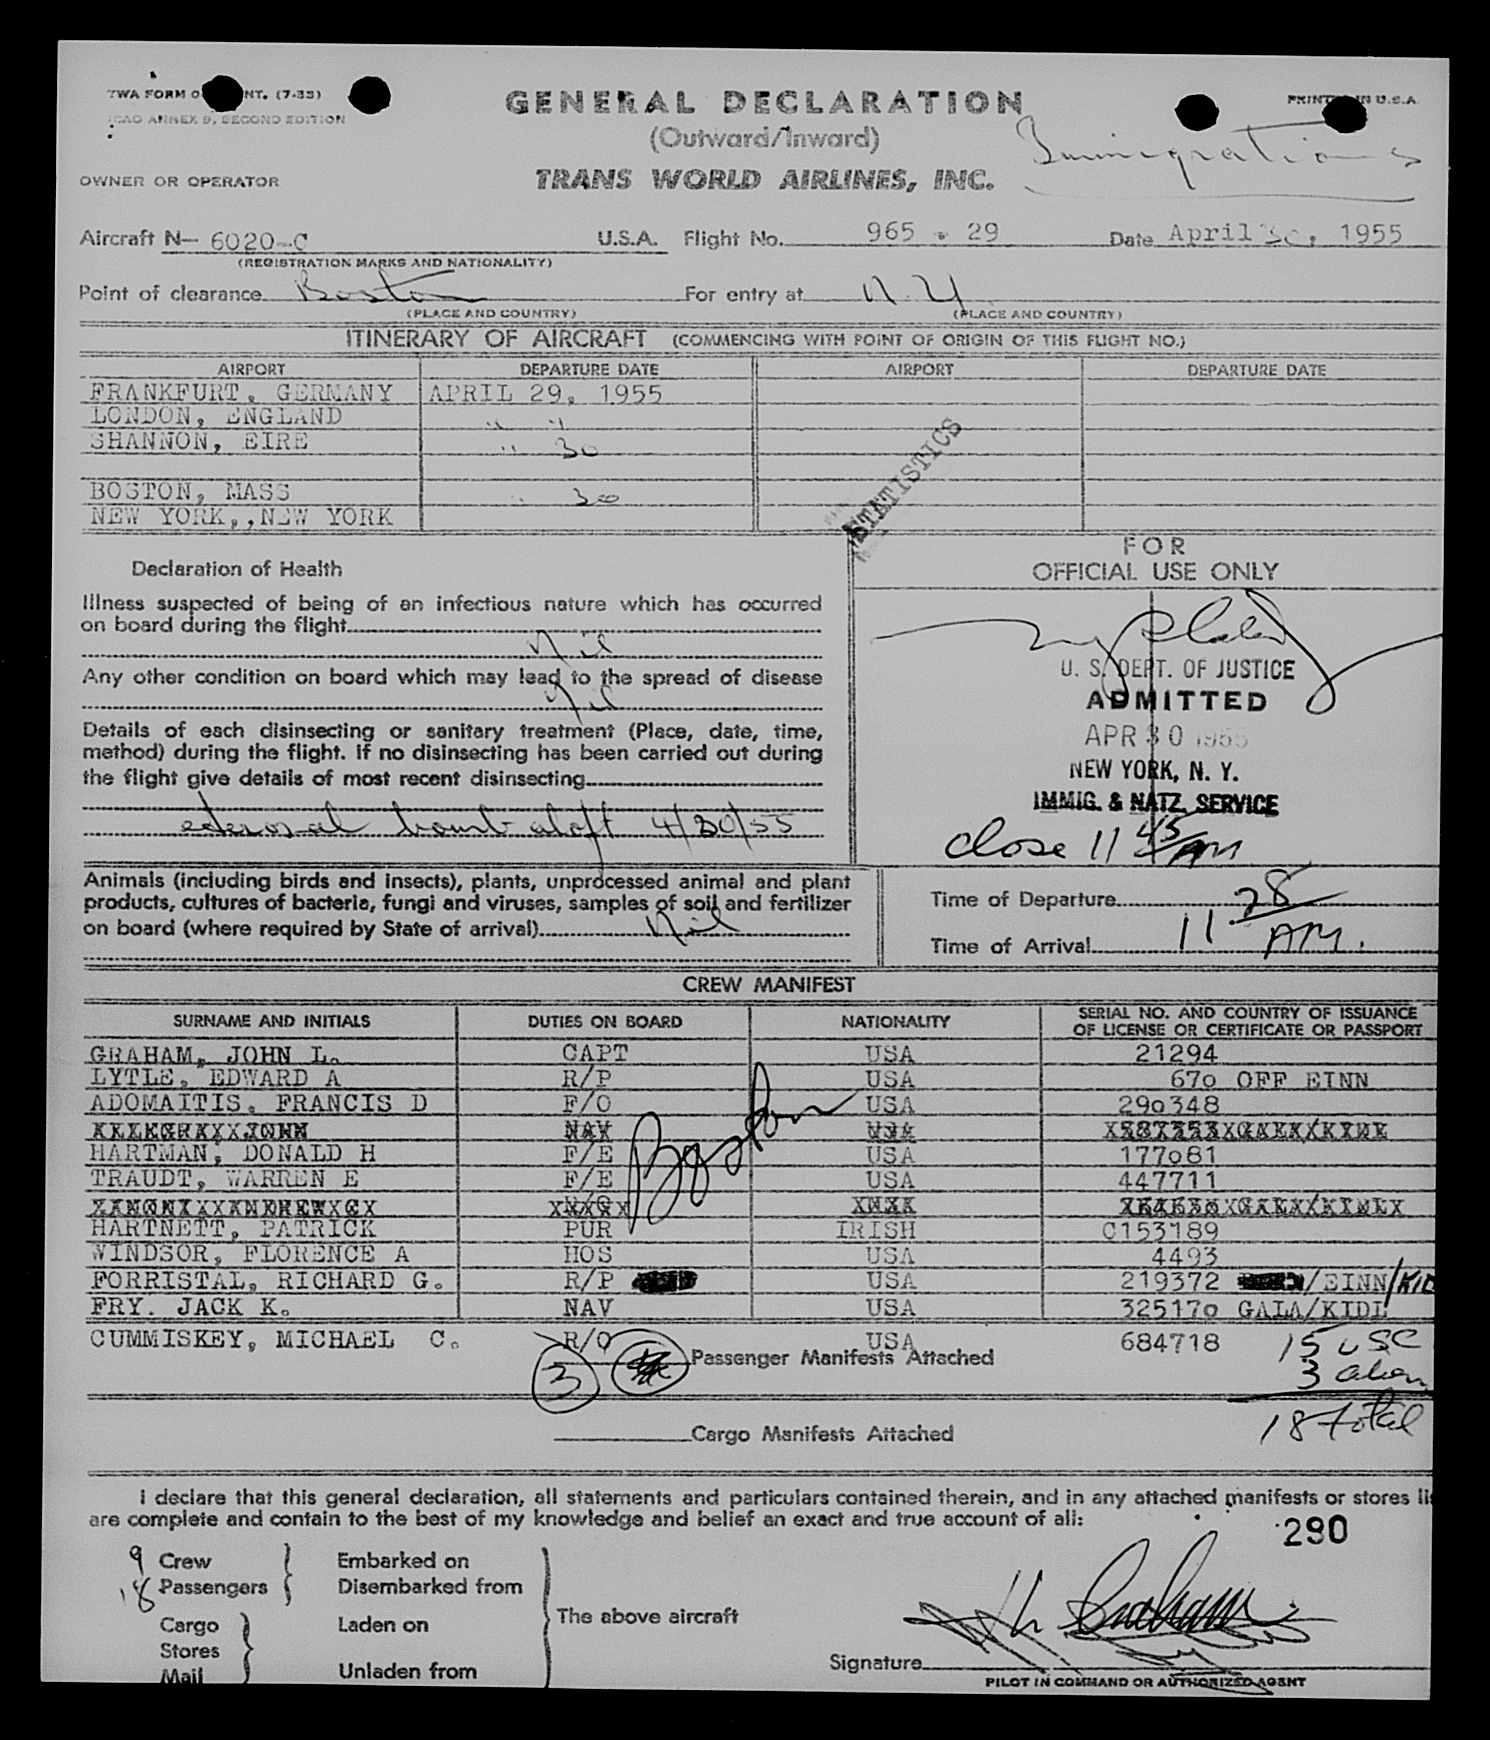 TWA FORM O NT. (7-55)
ICAO ANNEX 9, SECOND EDITION
GENERAL DECLARATION
(Outward/Inward)
PRINTED IN U.S.A.
Immigrations
OWNER OR OPERATOR
TRANS WORLD AIRLINES, INC.
Aircraft N- 6020-C U.S.A. Flight No. 965 - 29 Date April 30, 1955
(REGISTRATION MARKS AND NATIONALITY)
Point of clearance Boston For entry at N.Y.
(PLACE AND COUNTRY) (PLACE AND COUNTRY)
ITINERARY OF AIRCRAFT (COMMENCING WITH POINT OF ORIGIN OF THIS FLIGHT NO.)
AIRPORT DEPARTURE DATE AIRPORT DEPARTURE DATE
FRANKFURT, GERMANY APRIL 29, 1955
LONDON, ENGLAND " "
SHANNON, EIRE " 30
BOSTON, MASS " 30
NEW YORK,,NEW YORK
STATISTICS
Declaration of Health
FOR
OFFICIAL USE ONLY
Illness suspected of being of an infectious nature which has occurred
on board during the flight
Nil
Any other condition on board which may lead to the spread of disease
Nil
Details of each disinsecting or sanitary treatment (Place, date, time,
method) during the flight. If no disinsecting has been carried out during
the flight give details of most recent disinsecting
aderosal bomb aloft 4/30/55
U. S. DEPT. OF JUSTICE
ADMITTED
APR 30 1955
NEW YORK, N. Y.
IMMIG. & NATZ. SERVICE
Close 11 45 AM
Animals (including birds and insects), plants, unprocessed animal and plant
products, cultures of bacteria, fungi and viruses, samples of soil and fertilizer
on board (where required by State of arrival) Nil
Time of Departure
Time of Arrival 11 28 AM.
CREW MANIFEST
SURNAME AND INITIALS DUTIES ON BOARD NATIONALITY SERIAL NO. AND COUNTRY OF ISSUANCE
OF LICENSE OR CERTIFICATE OR PASSPORT
GRAHAM, JOHN L. CAPT USA 21294
LYTLE, EDWARD A R/P USA 670 OFF EINN
ADOMAITIS. FRANCIS D F/O USA 290348
NAV USA
HARTMAN, DONALD H F/E USA 177081
TRAUDT, WARREN E F/E USA 447711
HARTNETT, PATRICK PUR IRISH C153189
WINDSOR, FLORENCE A HOS USA 4493
FORRISTAL, RICHARD G. R/P USA 219372 /EINN/KID
FRY. JACK K. NAV USA 325170 GALA/KIDL
CUMMISKEY, MICHAEL C. R/O USA 684718
Boston
15 USC
3 alien
18 total
3 Passenger Manifests Attached
Cargo Manifests Attached
I declare that this general declaration, all statements and particulars contained therein, and in any attached manifests or stores li
are complete and contain to the best of my knowledge and belief an exact and true account of all:
290
9 Crew Embarked on
18 Passengers Disembarked from
The above aircraft
Cargo Laden on
Stores
Mail Unladen from
Signature
PILOT IN COMMAND OR AUTHORIZED AGENT